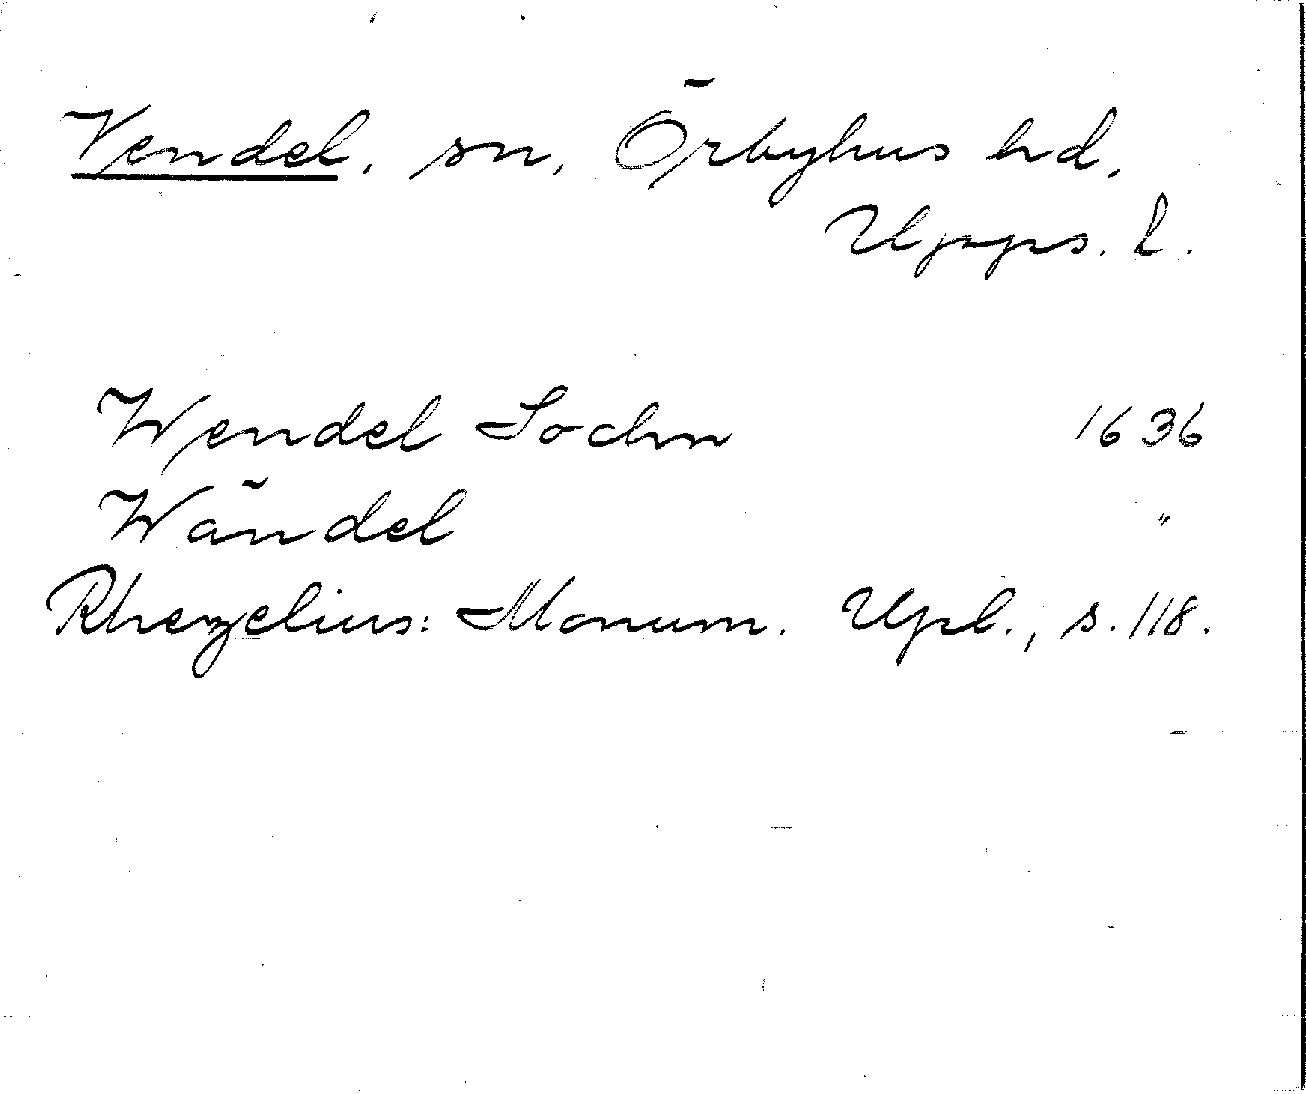 Vendel, sn, Örbyhus hd,
Upps. l.
Wendel Sochn 1636
Wändel "
Rhezelius: Monum. Upl., s. 118.